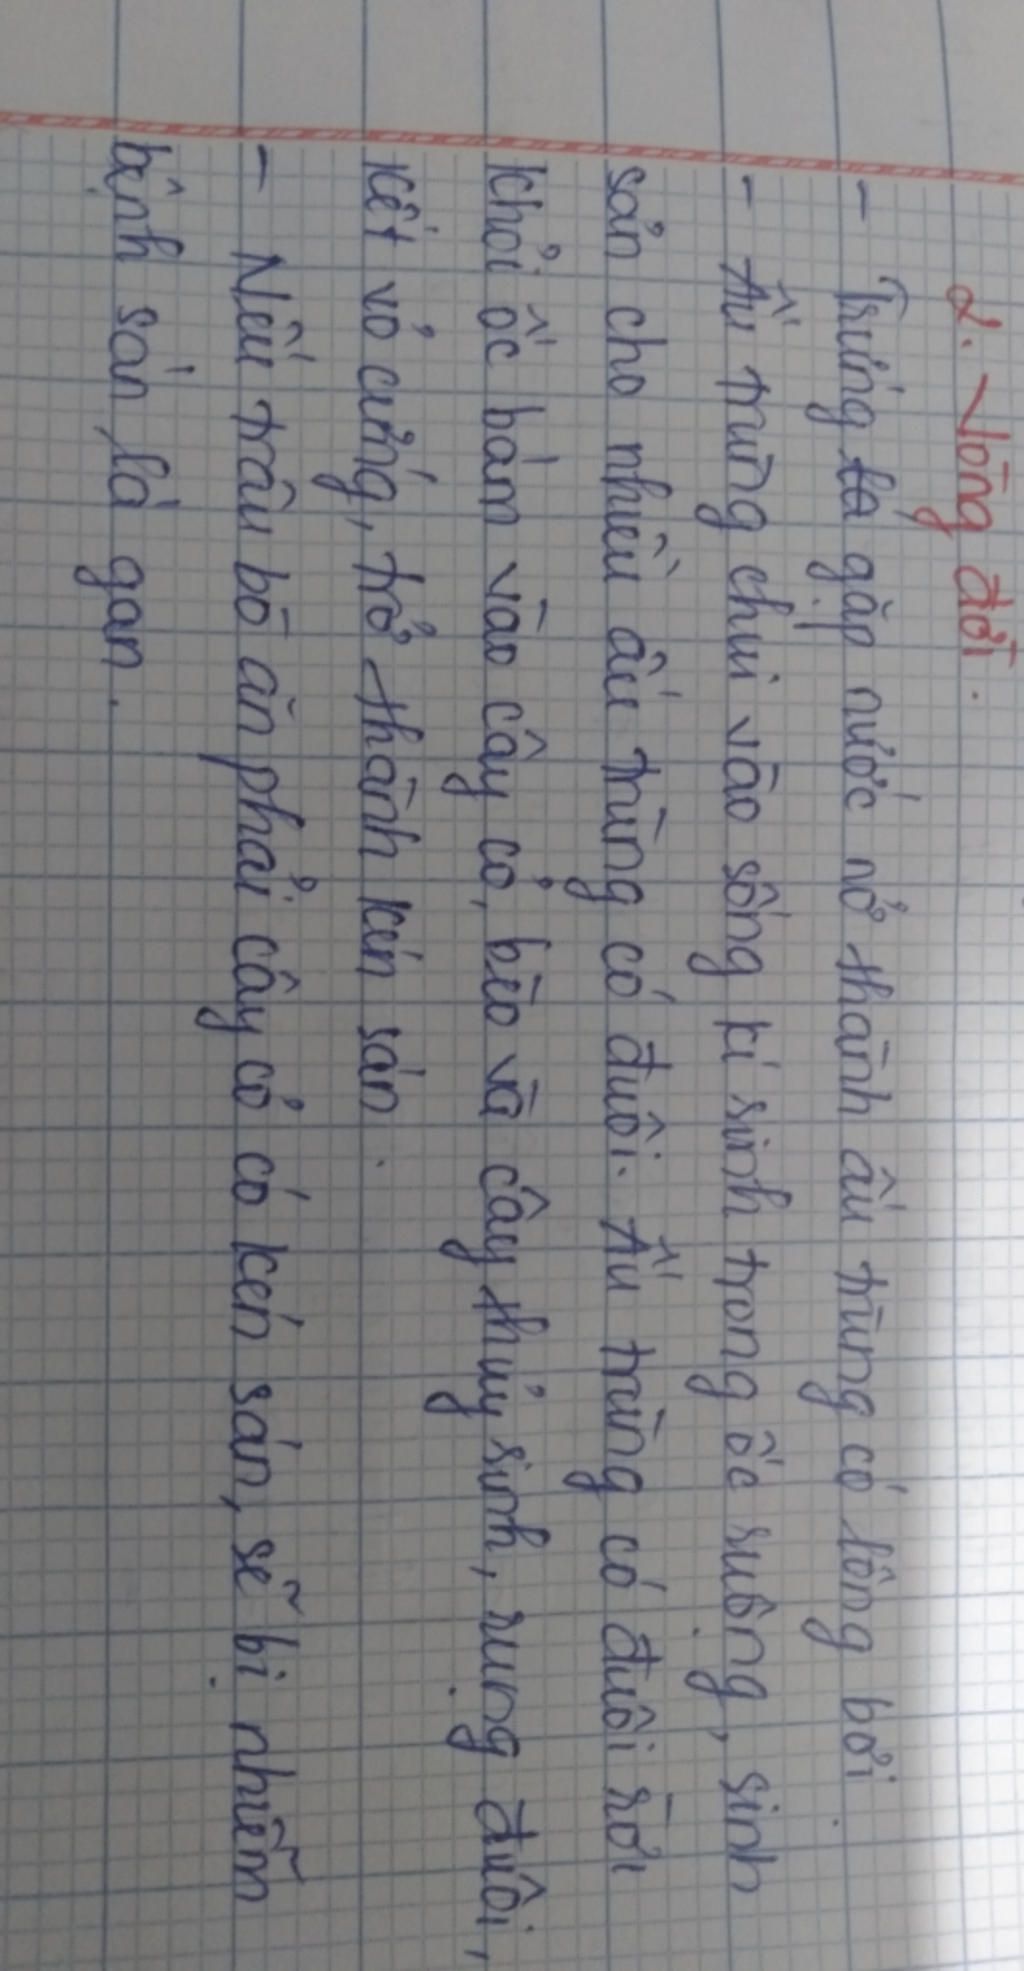 2. Vòng đời.
- Trứng gặp nước nở thành ấu trùng có lông bơi
- Ấu trùng chui vào sống kí sinh trong ốc ruộng, sinh
sản cho nhiều ấu trùng có đuôi. Ấu trùng có đuôi rời
khỏi ốc bám vào cây cỏ, bèo và cây thủy sinh, rụng đuôi,
kết vỏ cứng, trở thành kén sán.
- Nếu trâu bò ăn phải cây cỏ có kén sán, sẽ bị nhiễm
bệnh sán lá gan.